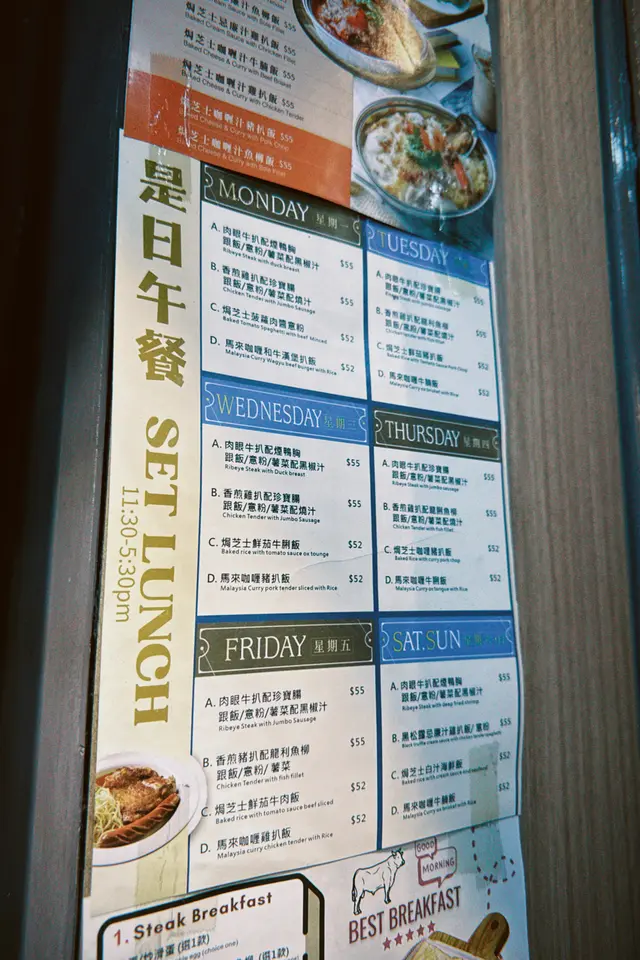 焗芝士忌廉汁雞扒飯 $55
Baked Cream Sauce with Chicken Fillet
焗芝士咖喱汁牛腩飯 $55
Baked Cheese & Curry with Beef Brisket
焗芝士咖喱汁雞扒飯 $55
Baked Cheese & Curry with Chicken Tender
焗芝士咖喱汁豬扒飯 $55
Baked Cheese & Curry with Pork Chop
焗芝士咖喱汁魚柳飯 $55
Baked Cheese & Curry with Sole Fillet
是日午餐 SET LUNCH
11:30-5:30pm
MONDAY 星期一
A. 肉眼牛扒配煙鴨胸
跟飯/意粉/薯菜配黑椒汁 $55
Ribeye Steak with duck breast
B. 香煎雞扒配珍寶腸
跟飯/意粉/薯菜配燒汁 $55
Chicken Tender with Jumbo Sausage
C. 焗芝士菠蘿肉醬意粉 $52
Baked Tomato Spaghetti with beef Minced
D. 馬來咖喱和牛漢堡扒飯 $52
Malaysia Curry Wagyu beef burger with Rice
TUESDAY
A. 肉眼牛扒配珍寶腸
跟飯/意粉/薯菜配黑椒汁 $55
B. 香煎雞扒配龍利魚柳
跟飯/意粉/薯菜配燒汁 $55
C. 焗芝士鮮茄豬扒飯 $52
D. 馬來咖喱牛腩飯 $52
WEDNESDAY 星期三
A. 肉眼牛扒配煙鴨胸
跟飯/意粉/薯菜配黑椒汁 $55
Ribeye Steak with Duck breast
B. 香煎雞扒配珍寶腸
跟飯/意粉/薯菜配燒汁 $55
Chicken Tender with Jumbo Sausage
C. 焗芝士鮮茄牛脷飯 $52
Baked rice with tomato sauce ox tounge
D. 馬來咖喱豬扒飯 $52
Malaysia Curry pork tender sliced with Rice
THURSDAY 星期四
A. 肉眼牛扒配珍寶腸
跟飯/意粉/薯菜配黑椒汁 $55
Ribeye Steak with jumbo sausage
B. 香煎雞扒配龍脷魚柳
跟飯/意粉/薯菜配燒汁 $55
Chicken Tender with fish fillet
C. 焗芝士咖喱豬扒飯 $52
Baked Rice with curry pork chop
D. 馬來咖喱牛脷飯 $52
Malaysia Curry ox tongue with Rice
FRIDAY 星期五
A. 肉眼牛扒配珍寶腸
跟飯/意粉/薯菜配黑椒汁 $55
Ribeye Steak with Jumbo Sausage
B. 香煎豬扒配龍利魚柳
跟飯/意粉/薯菜 $55
Chicken Tender with fish fillet
C. 焗芝士鮮茄牛肉飯 $52
Baked rice with tomato sauce beef sliced
D. 馬來咖喱雞扒飯 $52
Malaysia curry chicken tender with Rice
SAT.SUN
A. 肉眼牛扒配煙鴨胸
跟飯/意粉/薯菜配黑椒汁 $55
Ribeye Steak with deep fried shrimp
B. 黑松露忌廉汁雞扒飯/意粉 $55
C. 焗芝士白汁海鮮飯 $52
D. 馬來咖喱牛腩飯 $52
GOOD
MORNING
BEST BREAKFAST
1. Steak Breakfast
炒滑蛋 (選1款)
egg (choice one)
(選1款)
(choice one)